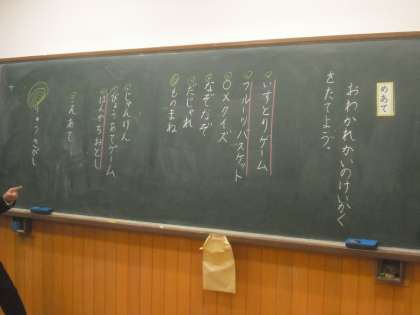 めあて
おわかれかいのけいかく
をたてよう。
いすとりゲーム
フルーツバスケット
○×クイズ
なぞなぞ
だじゃれ
ものまね
じゃんけん
びょうあてゲーム
はんかちおとし